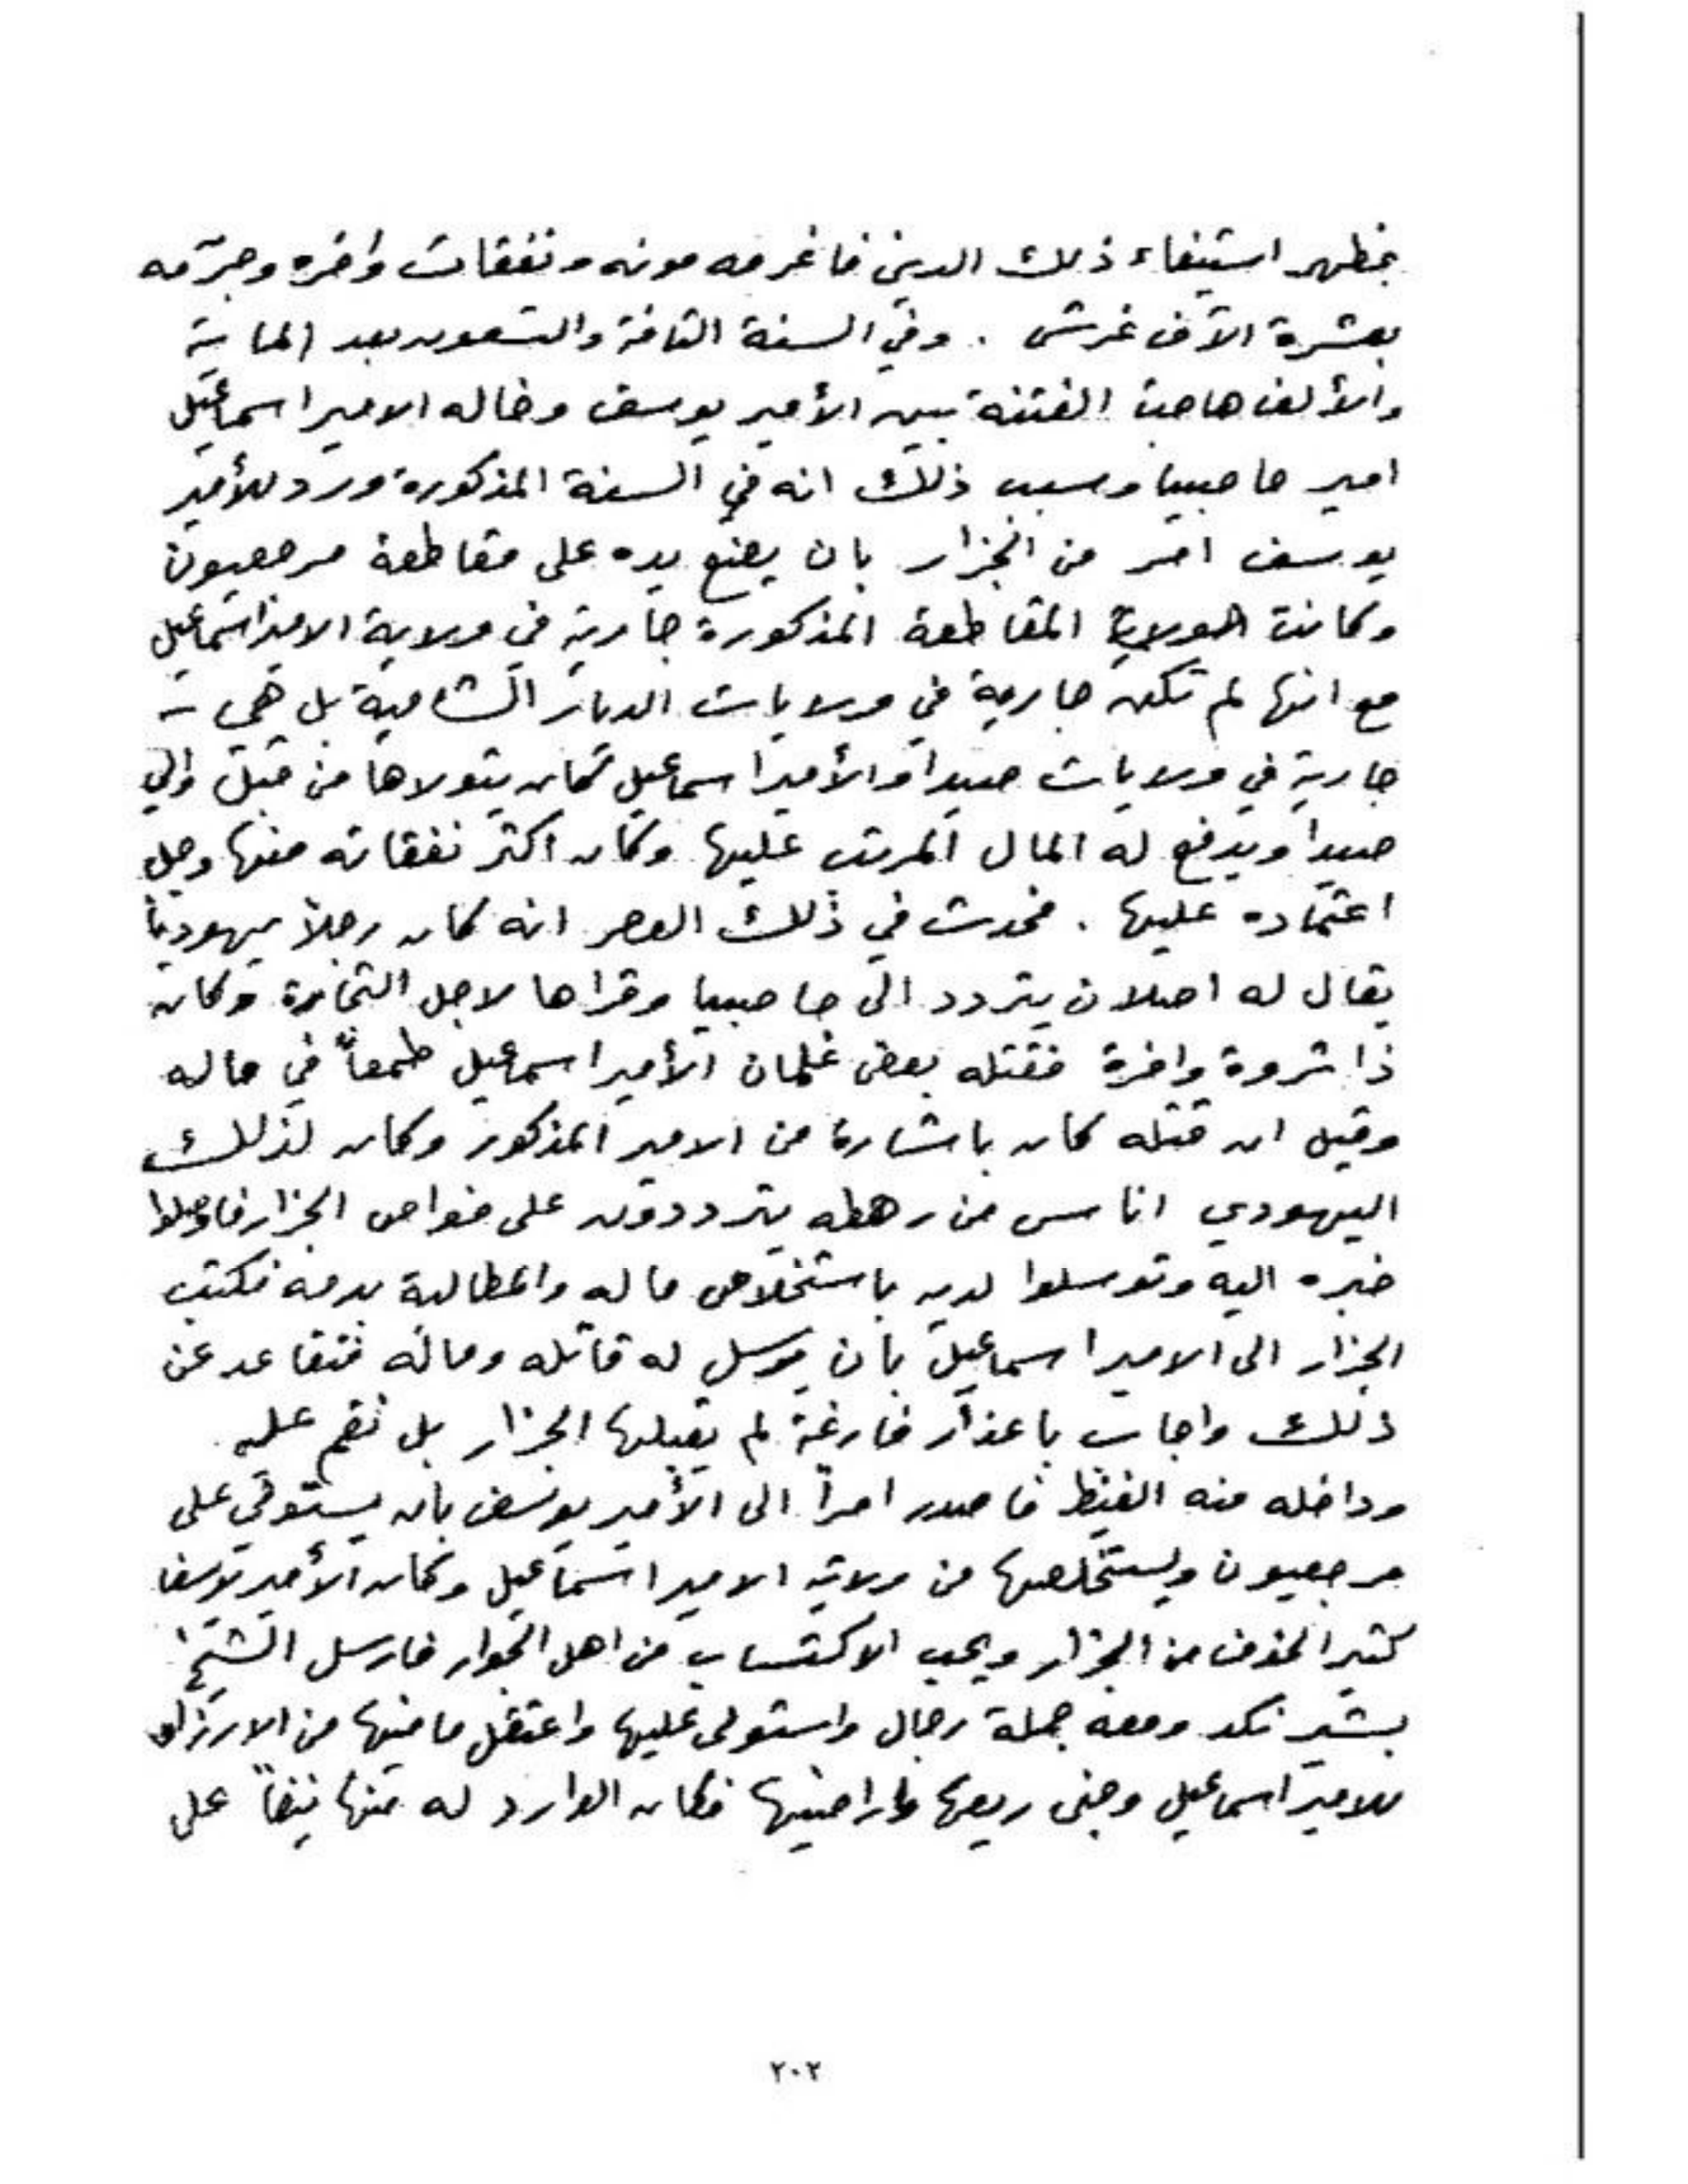 بمظهر استيفاء ذلك الدين فاغرمه مونه ونفقات وافره وجرّمه
بعشرة الآف غرش . وفي السنة الثامنة والتسعون بعد الماية
والألف هاجت الفتنة بين الأمير يوسف وخاله الامير اسماعيل
امير حاصبيا وسبب ذلك انه في السنة المذكورة ورد للأمير
يوسف امر من الجزار بان يضع يده على مقاطعة مرجعيون
وكانت المقاطعة المذكورة جارية في ولاية الامير اسماعيل
مع انها لم تكن جارية في ولايات الديار الشامية بل هي
جارية في ولايات صيدا والأمير اسماعيل كان يتولاها من قبل والي
صيدا ويدفع له المال المرتب عليها وكان اكثر نفقاته منها وجل
اعتماده عليها . فحدث في ذلك العصر انه كان رجلاً يهودياً
يقال له اصلان يتردد الى حاصبيا وقراها لاجل التجارة وكان
ذا ثروة وافرة فقتله بعض غلمان الأمير اسماعيل طمعاً في ماله
وقيل ان قتله كان باشارة من الامير المذكور وكان لذلك
اليهودي اناس من رهطه يترددون على خواص الجزار فاوصلوا
خبره اليه وتوسلوا لديه باستخلاص ماله والمطالبة بدمه فكتب
الجزار الى الامير اسماعيل بان يرسل له قاتله وماله فتقاعد عن
ذلك واجاب باعذار فارغة لم يقبلها الجزار بل نقم عليه
وداخله منه الغيظ فاصدر امراً الى الأمير يوسف بان يستولي على
مرجعيون ويستخلصها من ولاية الامير اسماعيل وكان الأمير يوسف
كثير الخوف من الجزار ويحب الاكتساب من اهل الجوار فارسل الشيخ
بشير نكد ومعه جملة رجال واستولى عليها واعتقل ما فيها من الارزاق
للامير اسماعيل وجنى ريعها واراضيها فكان الوارد له منها ينيف على
٢٠٢